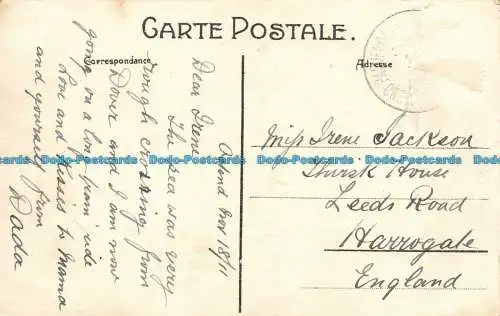 CARTE POSTALE.
Correspondance
Adresse
Ostend Nov 18/11
Dear Irene
The sea was very
rough crossing from
Dover and I am now
going on a long train ride
Love and kisses to Mama
and yourself from
Dada
Miss Irene Jackson
Thirsk House
Leeds Road
Harrogate
England